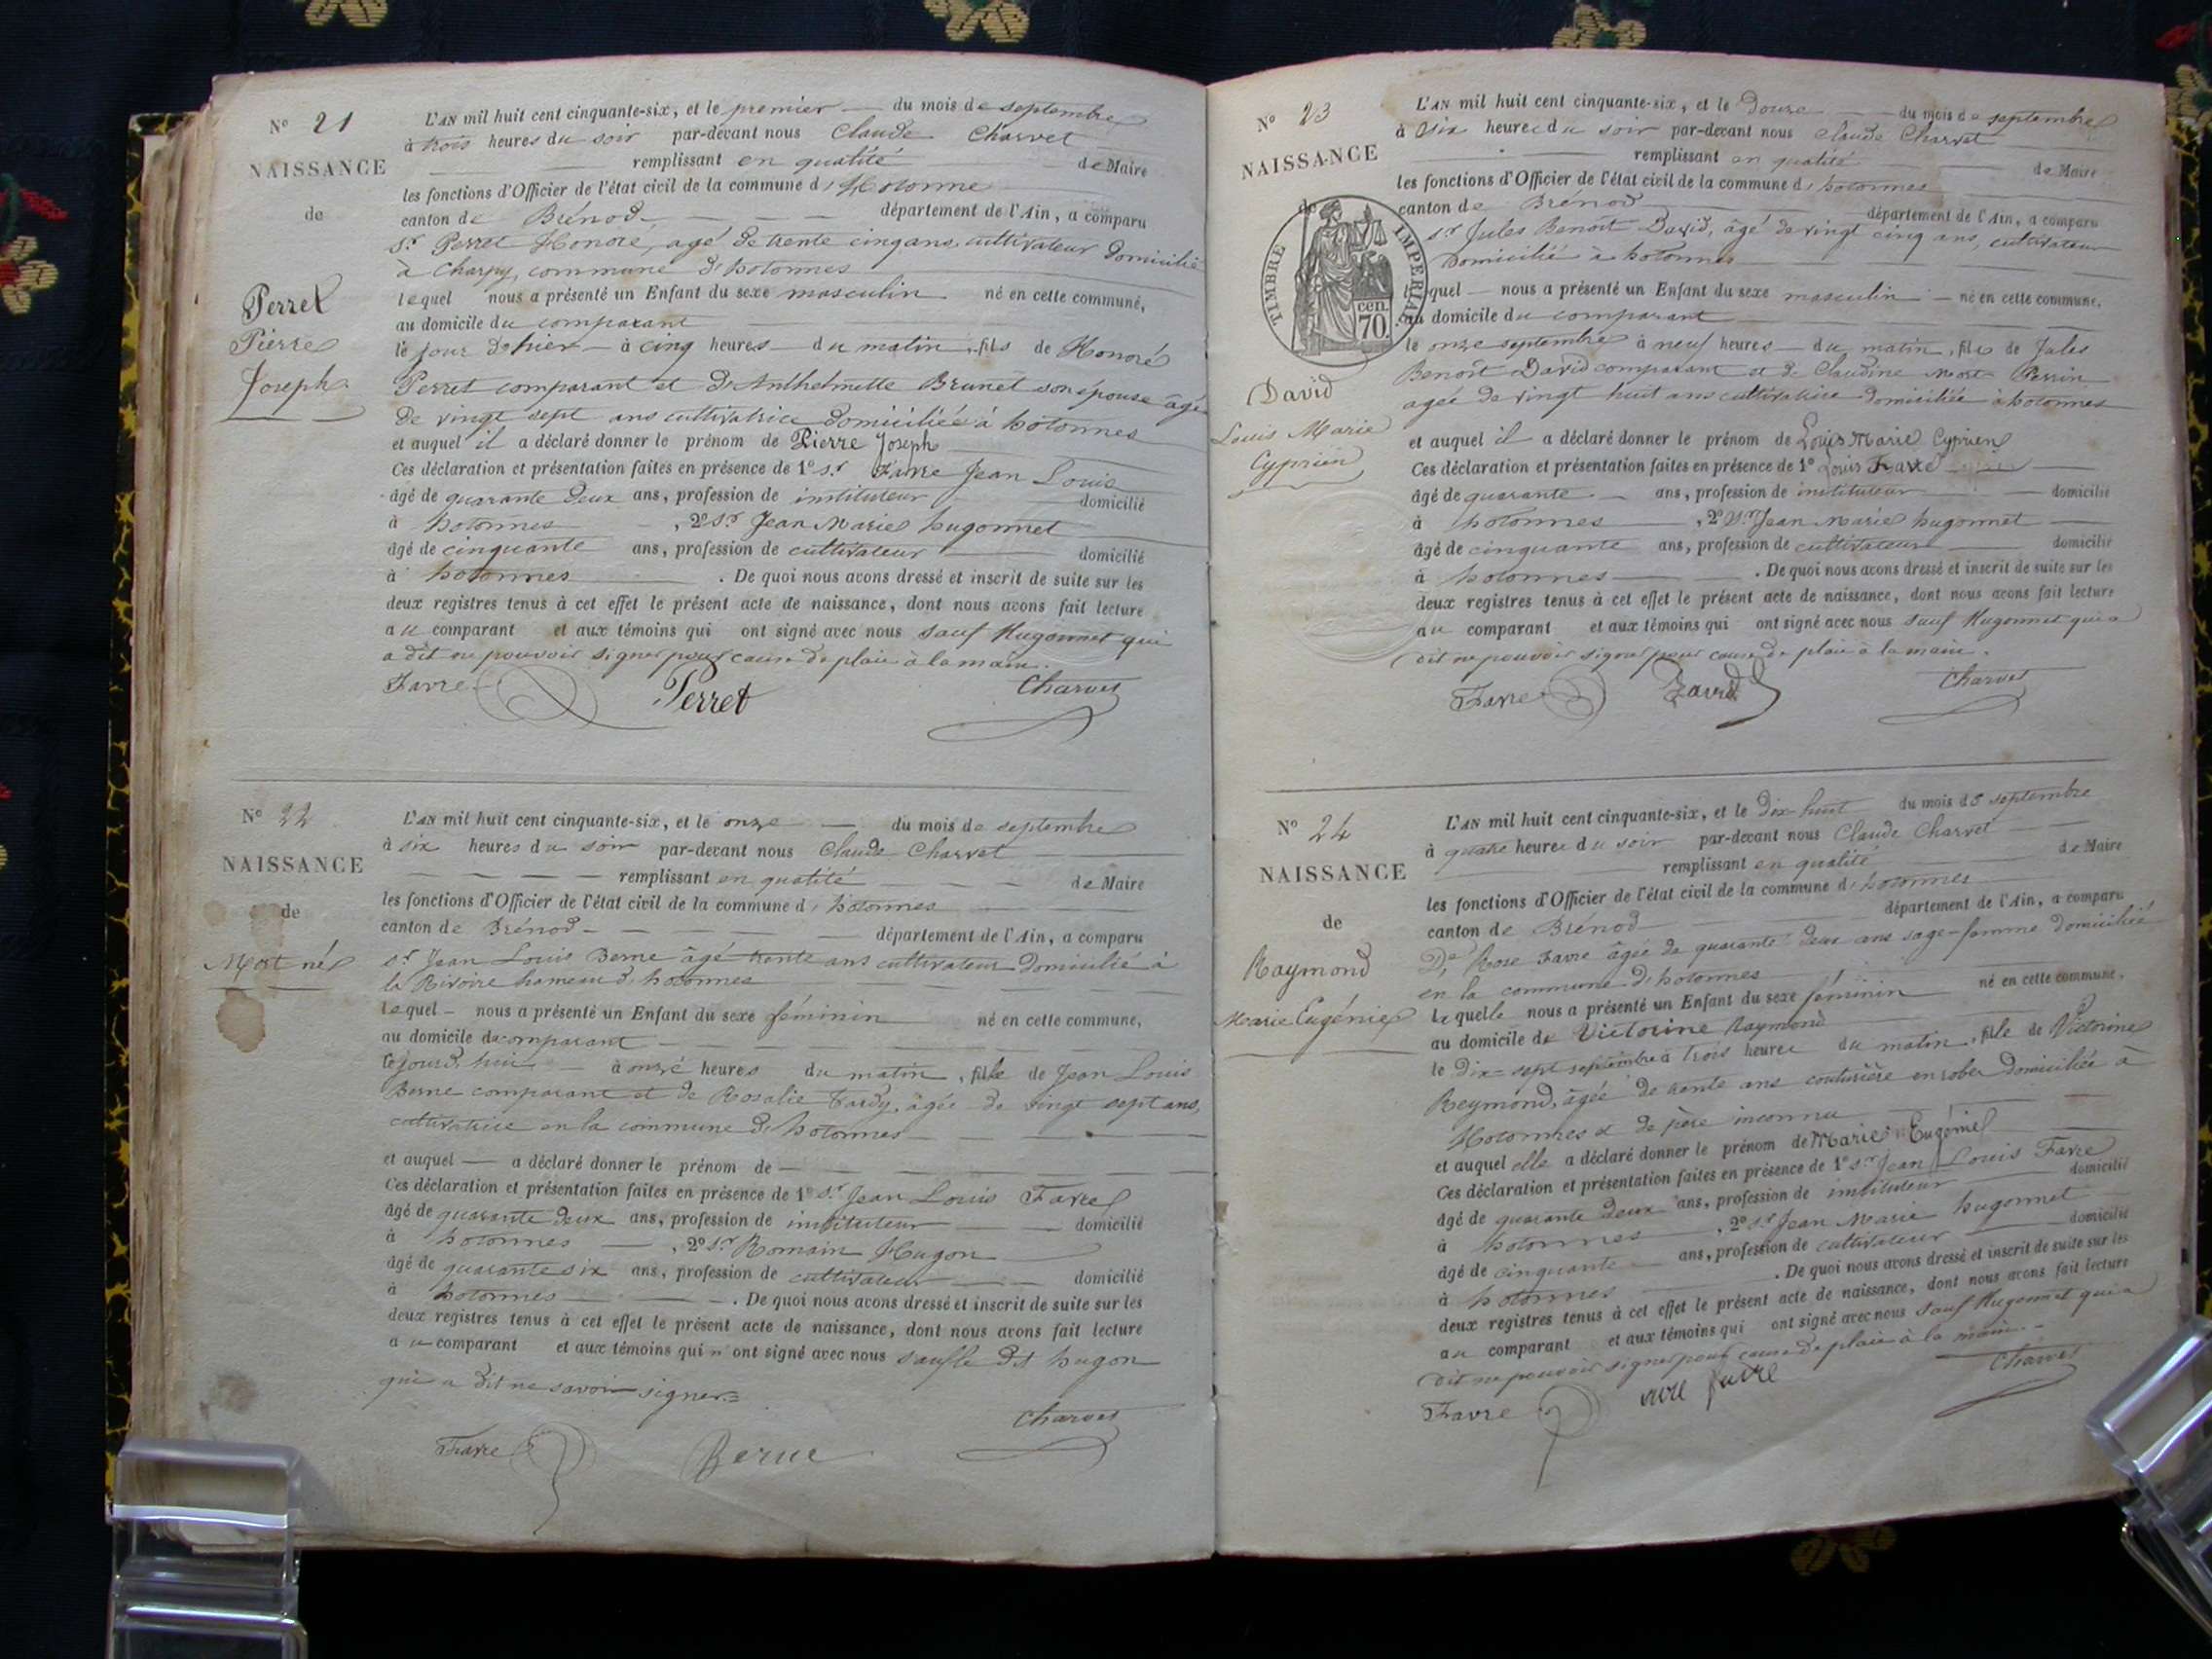 Nº 21
NAISSANCE
de
Perret
Pierre
Joseph
L'AN mil huit cent cinquante-six, et le premier du mois de septembre
à trois heures du soir par-devant nous Claude Charvet
remplissant en qualité de Maire
les fonctions d'Officier de l'état civil de la commune d'Hotonne
canton de Brénod département de l'Ain, a comparu
Sr Perret Honoré, agé de trente cinq ans, cultivateur domicilié
à Charpy, commune d'hotonnes
lequel nous a présenté un Enfant du sexe masculin né en cette commune,
au domicile du comparant
le jour d'hier à cinq heures du matin, fils de Honoré
Perret comparant et d'Anthelmette Brunet son épouse âgée
de vingt sept ans cultivatrice domiciliée à hotonnes
et auquel il a déclaré donner le prénom de Pierre Joseph
Ces déclaration et présentation faites en présence de 1º Sr Favre Jean Louis
âgé de quarante deux ans, profession de instituteur domicilié
à hotonnes, 2º Sr Jean Marie hugonnet
âgé de cinquante ans, profession de cultivateur domicilié
à hotonnes. De quoi nous avons dressé et inscrit de suite sur les
deux registres tenus à cet effet le présent acte de naissance, dont nous avons fait lecture
au comparant et aux témoins qui ont signé avec nous sauf Hugonnet qui
a dit ne pouvoir signer pour cause de plaie à la main.
Favre Perret Charvet
Nº 22
NAISSANCE
de
Mort né
L'AN mil huit cent cinquante-six, et le onze du mois de septembre
à six heures du soir par-devant nous Claude Charvet
remplissant en qualité de Maire
les fonctions d'Officier de l'état civil de la commune d'hotonnes
canton de Brénod département de l'Ain, a comparu
Sr Jean Louis Berne âgé trente ans cultivateur domicilié à
la Rivoire hameau d'hotonnes
lequel nous a présenté un Enfant du sexe féminin né en cette commune,
au domicile du comparant
ce jourd'hui à onze heures du matin, fille de Jean Louis
Berne comparant et de Rosalie Tardy, âgée de vingt sept ans,
cultivatrice en la commune d'hotonnes
et auquel a déclaré donner le prénom de
Ces déclaration et présentation faites en présence de 1º Sr Jean Louis Favre
âgé de quarante deux ans, profession de instituteur domicilié
à hotonnes, 2º Sr Romain Hugon
âgé de quarante six ans, profession de cultivateur domicilié
à hotonnes. De quoi nous avons dressé et inscrit de suite sur les
deux registres tenus à cet effet le présent acte de naissance, dont nous avons fait lecture
au comparant et aux témoins qui ont signé avec nous sauf le dit hugon
qui a dit ne savoir signer
Favre Berne Charvet
Nº 23
NAISSANCE
de
TIMBRE IMPERIAL
cen.
70.
David
Louis Marie
Cyprien
L'AN mil huit cent cinquante-six, et le douze du mois de septembre
à six heures du soir par-devant nous Claude Charvet
remplissant en qualité de Maire
les fonctions d'Officier de l'état civil de la commune d'hotonnes
canton de Brénod département de l'Ain, a comparu
Sr Jules Benoît David, âgé de vingt cinq ans, cultivateur
domicilié à hotonnes
quel nous a présenté un Enfant du sexe masculin né en cette commune,
au domicile du comparant
le onze septembre à neuf heures du matin, fils de Jules
Benoît David comparant et de Claudine Perrin
agée de vingt huit ans cultivatrice domiciliée à hotonnes
et auquel il a déclaré donner le prénom de Louis Marie Cyprien
Ces déclaration et présentation faites en présence de 1º Louis Favre
âgé de quarante ans, profession de instituteur domicilié
à hotonnes, 2º Sr Jean Marie hugonnet
âgé de cinquante ans, profession de cultivateur domicilié
à hotonnes. De quoi nous avons dressé et inscrit de suite sur les
deux registres tenus à cet effet le présent acte de naissance, dont nous avons fait lecture
au comparant et aux témoins qui ont signé avec nous sauf Hugonnet qui a
dit ne pouvoir signer pour cause de plaie à la main.
Favre David Charvet
Nº 24
NAISSANCE
de
Raymond
Marie Eugénie
L'AN mil huit cent cinquante-six, et le dix huit du mois de septembre
à quatre heures du soir par-devant nous Claude Charvet
remplissant en qualité de Maire
les fonctions d'Officier de l'état civil de la commune d'hotonnes
canton de Brénod département de l'Ain, a comparu
De Rose Favre âgée de quarante deux ans sage-femme domiciliée
en la commune d'hotonnes
laquelle nous a présenté un Enfant du sexe féminin né en cette commune,
au domicile de Victorine Raymond
le dix-sept septembre à trois heures du matin, fille de Victorine
Reymond, âgée de trente ans couturière en robes domiciliée à
Hotonnes & de père inconnu
et auquel elle a déclaré donner le prénom de Marie Eugénie
Ces déclaration et présentation faites en présence de 1º Sr Jean Louis Favre
âgé de quarante deux ans, profession de instituteur domicilié
à hotonnes, 2º Sr Jean Marie hugonnet
âgé de cinquante ans, profession de cultivateur domicilié
à hotonnes. De quoi nous avons dressé et inscrit de suite sur les
deux registres tenus à cet effet le présent acte de naissance, dont nous avons fait lecture
au comparant et aux témoins qui ont signé avec nous sauf Hugonnet qui a
dit ne pouvoir signer pour cause de plaie à la main.
Favre favre Charvet